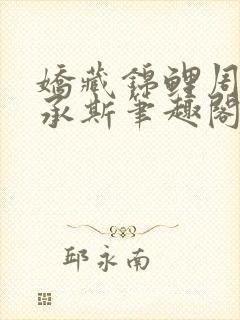 嬌藏錦鯉周
承斯筆趣閣
邱永南